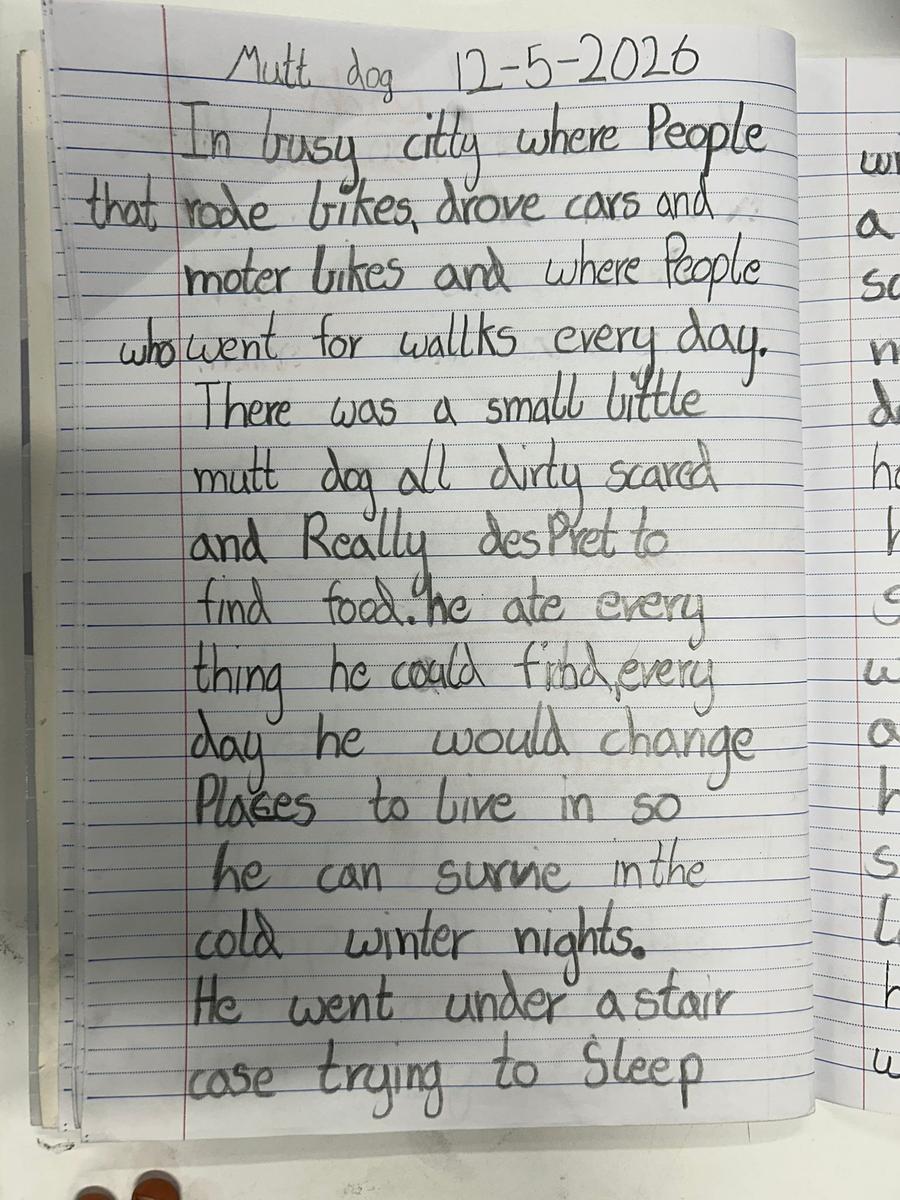 Mutt dog 12-5-2026
In busy citty where People
that rode bikes, drove cars and
moter bikes and where People
who went for wallks every day.
There was a small little
mutt dog all dirty scared
and Really desPret to
find food. he ate every
thing he could find, every
day he would change
Places to live in so
he can survie in the
cold winter nights.
He went under a stair
case trying to Sleep